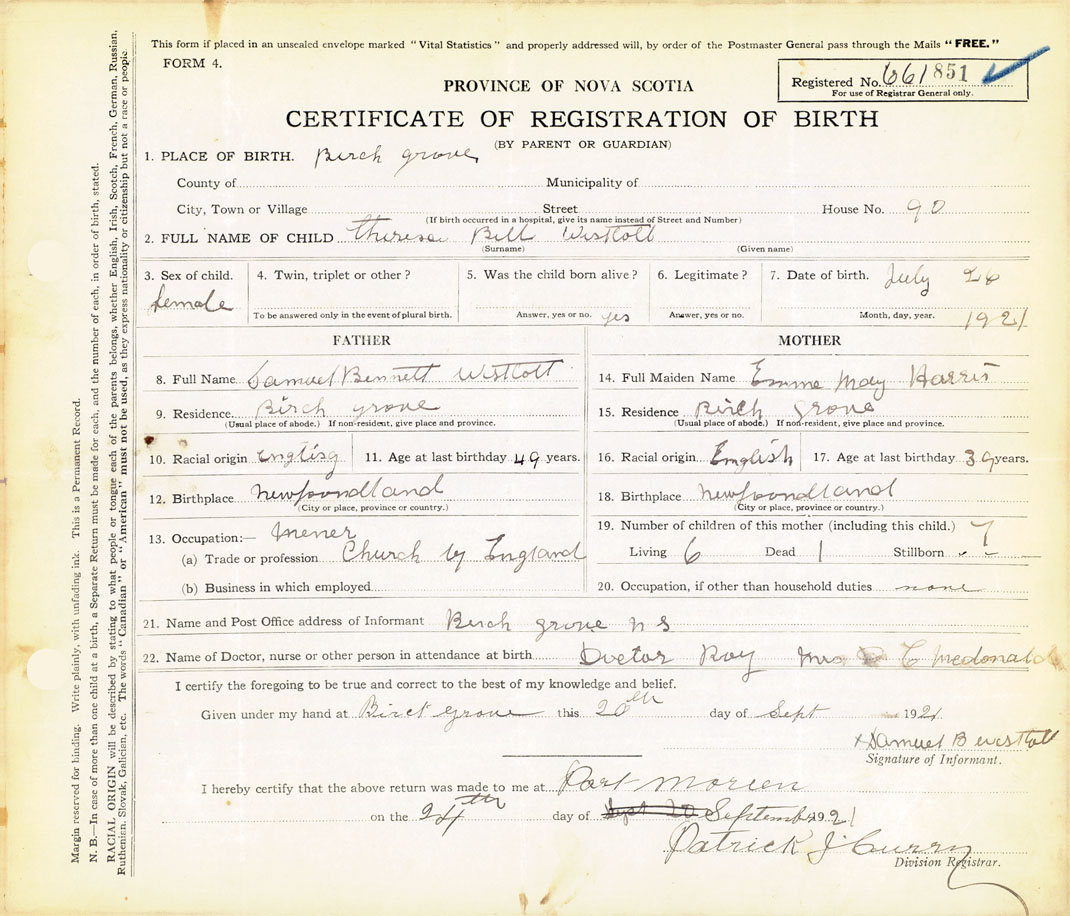 This form if placed in an unsealed envelope marked "Vital Statistics" and properly addressed will, by order of the Postmaster General pass through the Mails "FREE."
FORM 4.
Registered No. 661851
For use of Registrar General only.
PROVINCE OF NOVA SCOTIA
CERTIFICATE OF REGISTRATION OF BIRTH
(BY PARENT OR GUARDIAN)
1. PLACE OF BIRTH. Birch grove
County of Municipality of
City, Town or Village Street House No. 90
(If birth occurred in a hospital, give its name instead of Street and Number)
2. FULL NAME OF CHILD Theresa Bell Westcott
(Surname) (Given name)
3. Sex of child. 4. Twin, triplet or other? 5. Was the child born alive? 6. Legitimate? 7. Date of birth. July 26
female
To be answered only in the event of plural birth. Answer, yes or no. yes Answer, yes or no. Month, day, year. 1921
FATHER MOTHER
8. Full Name Samuel Bennett Westcott 14. Full Maiden Name Emma May Harris
9. Residence. Birch grove 15. Residence Birch grove
(Usual place of abode.) If non-resident, give place and province. (Usual place of abode.) If non-resident, give place and province.
10. Racial origin English 11. Age at last birthday 49 years. 16. Racial origin English 17. Age at last birthday 39 years.
12. Birthplace Newfoundland 18. Birthplace Newfoundland
(City or place, province or country.) (City or place, province or country.)
13. Occupation:— mener 19. Number of children of this mother (including this child.) 7
(a) Trade or profession Church by England Living 6 Dead 1 Stillborn - -
(b) Business in which employed 20. Occupation, if other than household duties none
21. Name and Post Office address of Informant Birch grove n s
22. Name of Doctor, nurse or other person in attendance at birth Doctor Roy Mrs D C Mcdonald
I certify the foregoing to be true and correct to the best of my knowledge and belief.
Given under my hand at Birch grove this 20th day of Sept 1921
x Samuel B Westcott
Signature of Informant.
I hereby certify that the above return was made to me at Port Morien
on the 24th day of September 1921
Patrick J Curry
Division Registrar.
Margin reserved for binding. Write plainly, with unfading ink. This is a Permanent Record.
N. B.—In case of more than one child at a birth, a Separate Return must be made for each, and the number of each, in order of birth, stated.
RACIAL ORIGIN will be described by stating to what people or tongue each of the parents belongs, whether English, Irish, Scotch, French, German, Russian,
Ruthenian, Slovak, Galician, etc. The words "Canadian" or "American" must not be used, as they express nationality or citizenship but not a race or people.